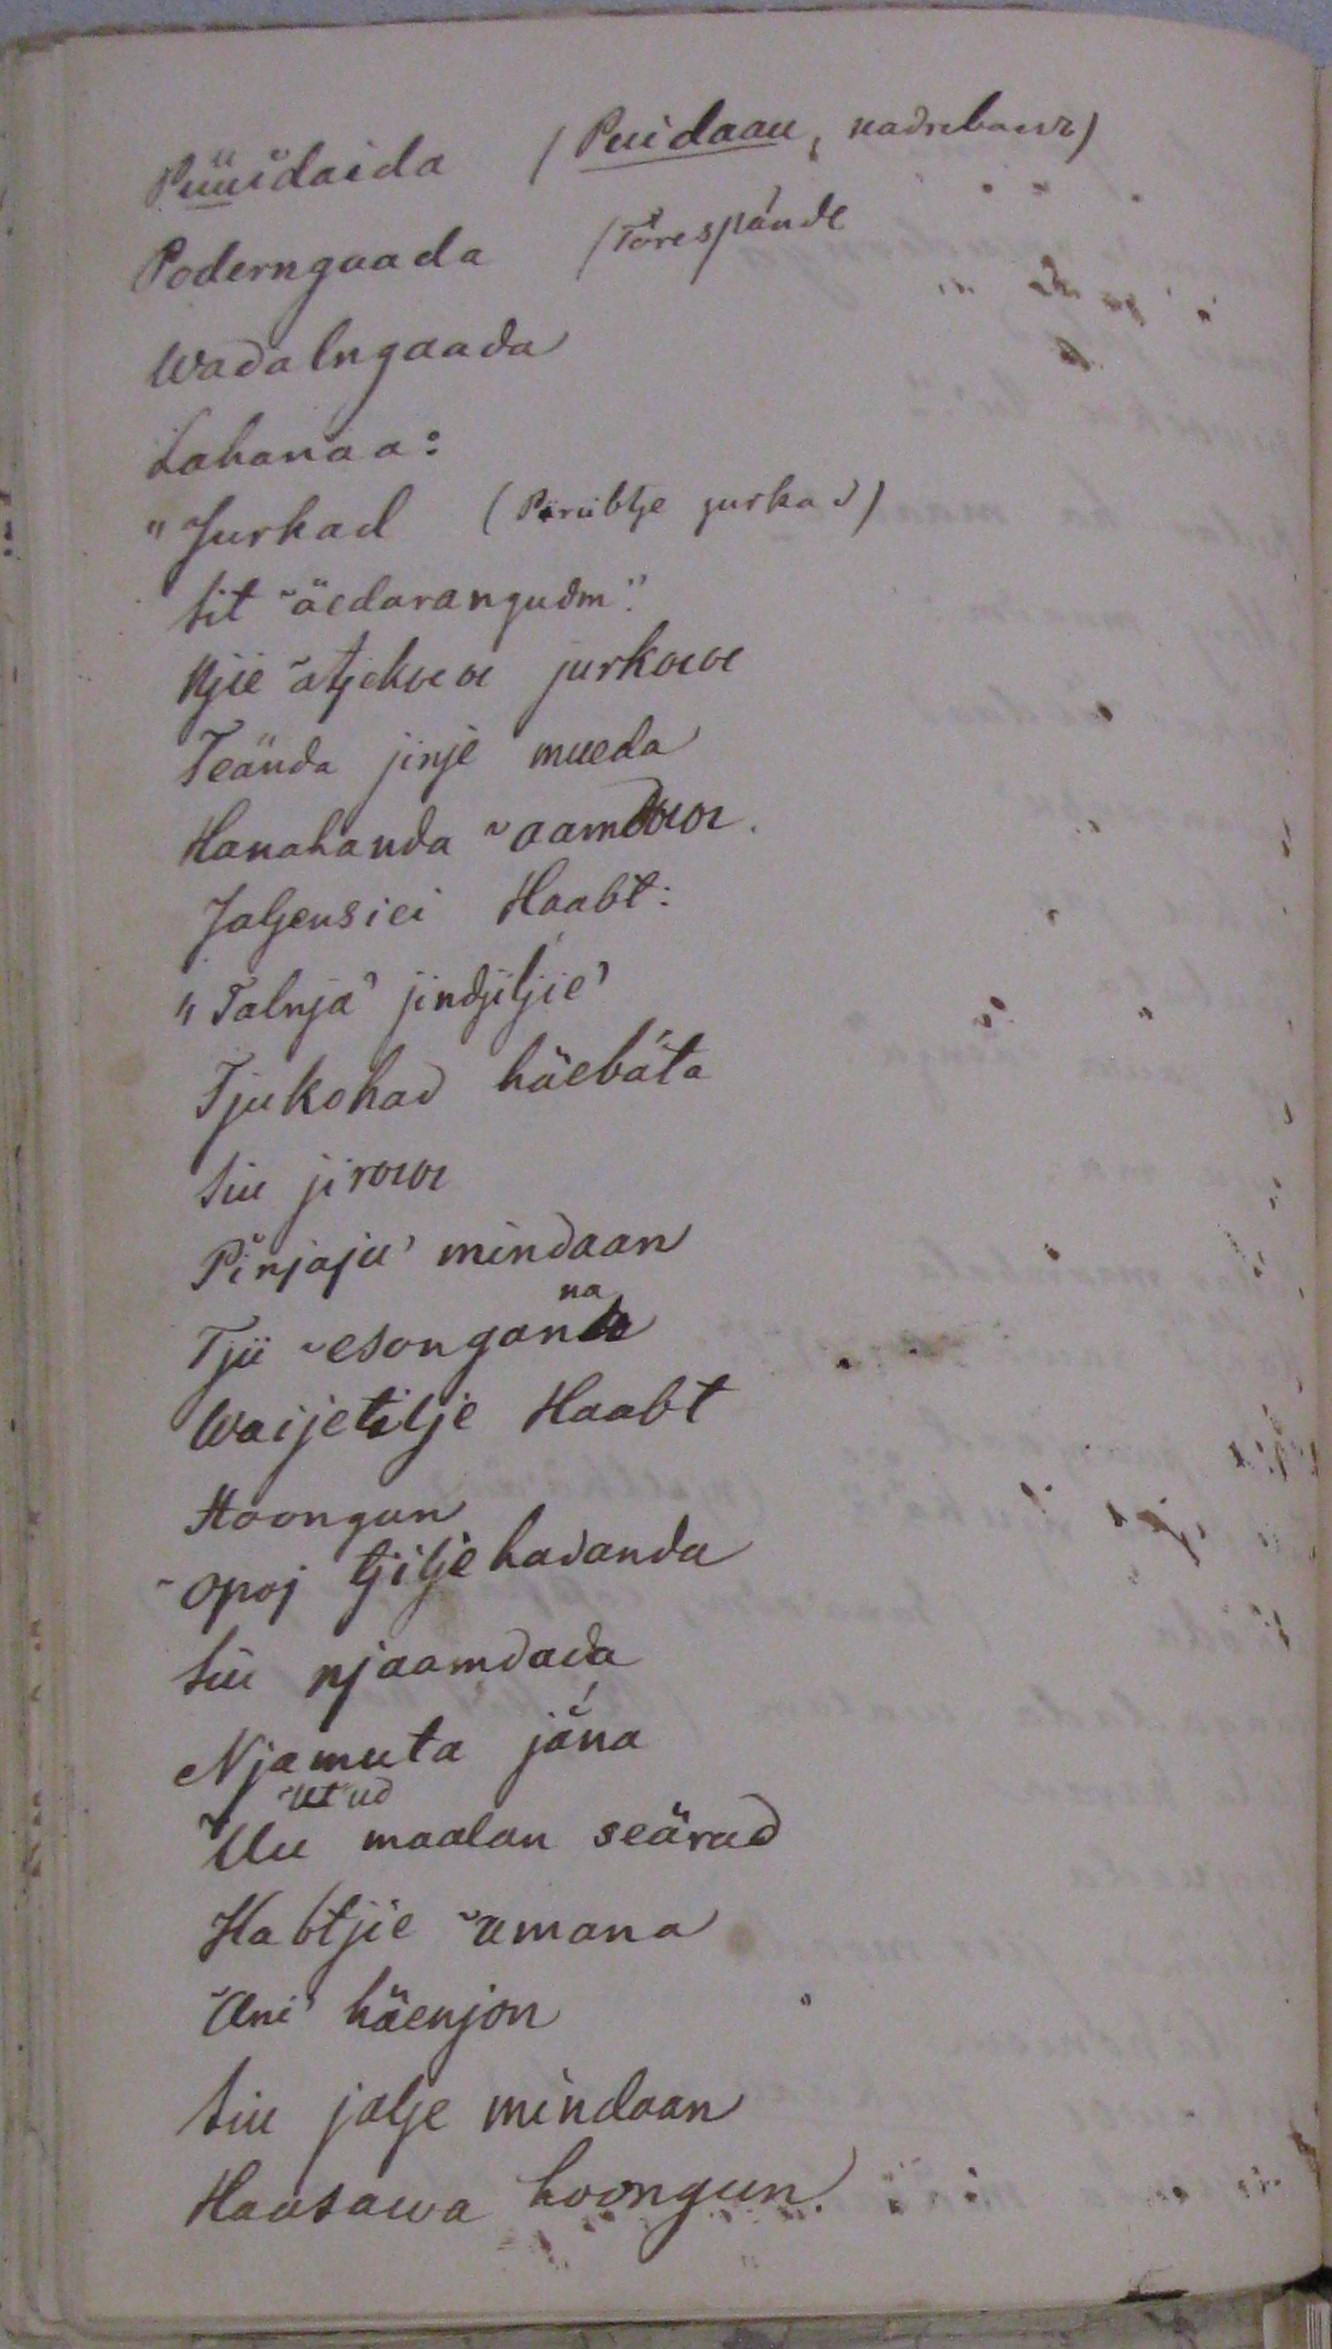 Püüidaida (Puidaau, nadrebauz)
Poderngaada (Törespände
Wadalngaada
Lahanaa:
"Jurkad (Pirübtje jurkad)
sit ˜äedarangudm".
Njie ˜atjekowow jurkowow
Teända jinje mueda
Hanahanda ˜aamdowow.
Jaljensiei Haabt:
"Talnja' jindjiljie'
Tjukohad häebäta
siu jirowow
Pirjaju' mindaan
na
Tjü ˜esongan
Waijetilje Haabt
Hoongun
˜opoj tjilje hadanda
siu njaamdada
Njamuta jäna
˜ut ud
˜Uu maalan seärad
Habtjie ˜umana
˜Ani' häenjon
siu jalje mindaan
Haasawa hoongun.